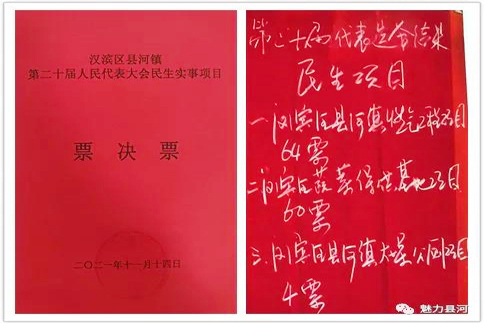 汉滨区县河镇
第二十届人民代表大会民生实事项目
票决票
二〇二一年十一月十四日
第二十届代表选会结果
民生项目
一、汉滨区县河镇燃气工程项目
64票
二、汉滨区蔬菜保供基地项目
60票
三、汉滨区县河镇大星公园项目
4票
魅力县河